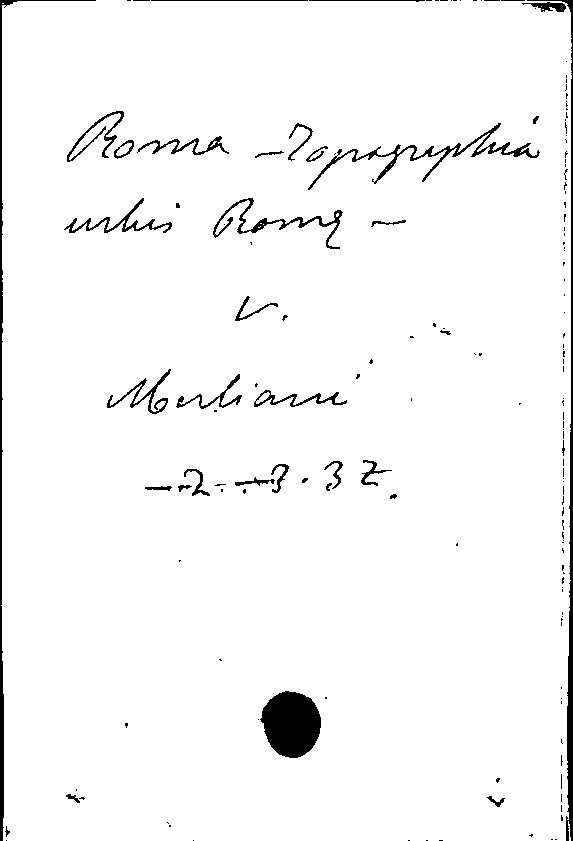 Roma - Topographia
urbis Romę -
v.
Marliani
-2.-3.3Z.